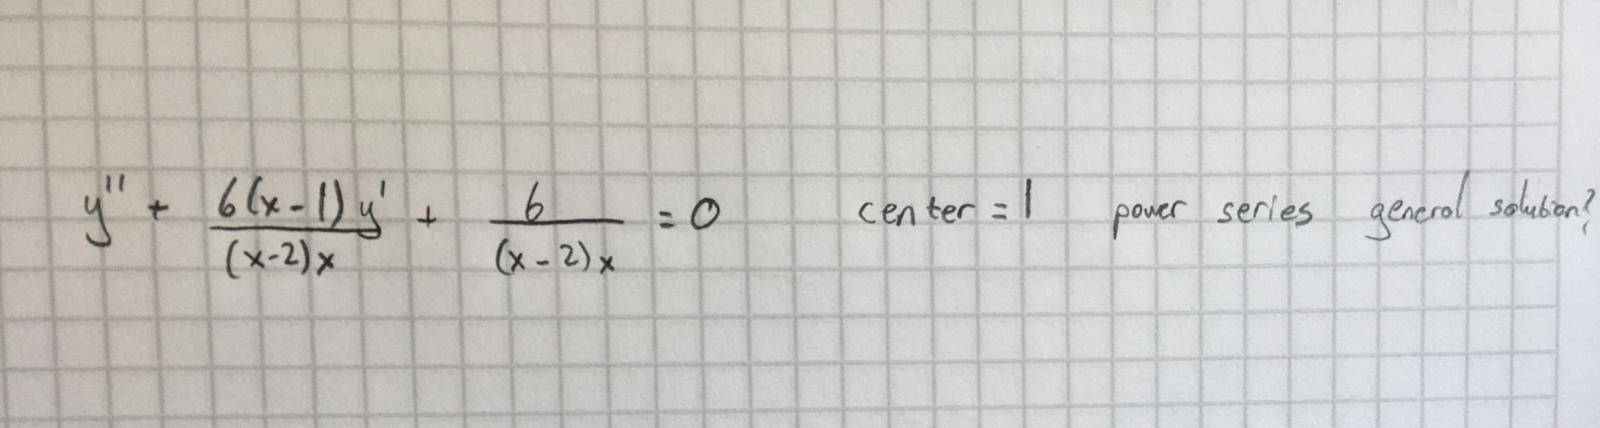 y'' + 6(x-1)y'/(x-2)x + 6/(x-2)x = 0 center = 1 power series general solution?